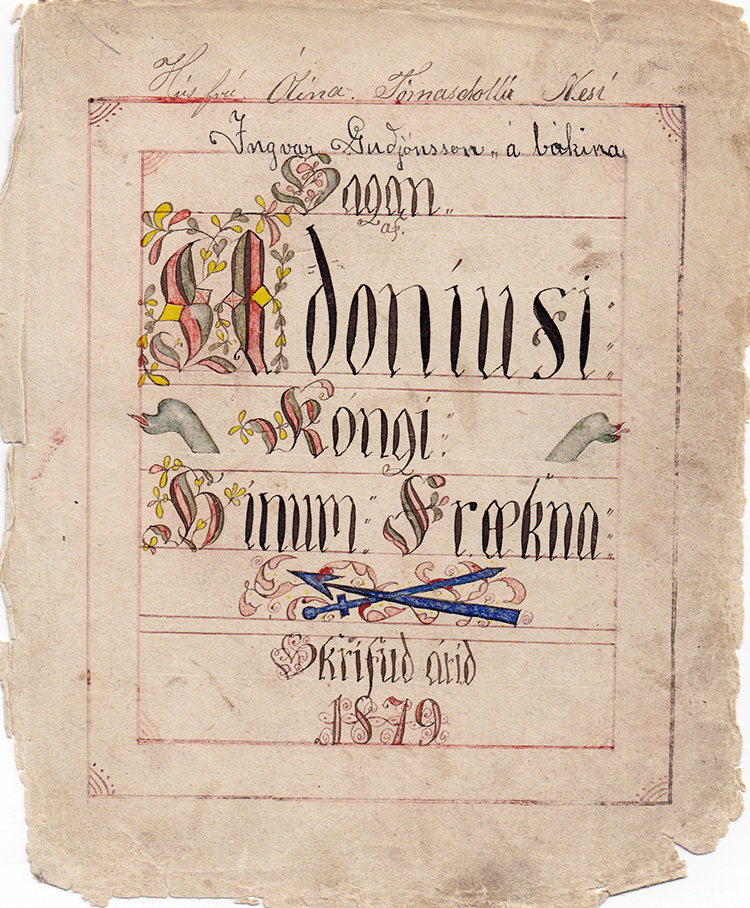 Húsfrú. Ólína. Tómasdóttir Nesi
Ingvar Guðjónsson „ á bókina
Sagan „
af.
Adoníusi „
Kóngi „
Hinum „ Frækna „
Skrifud árid
1879